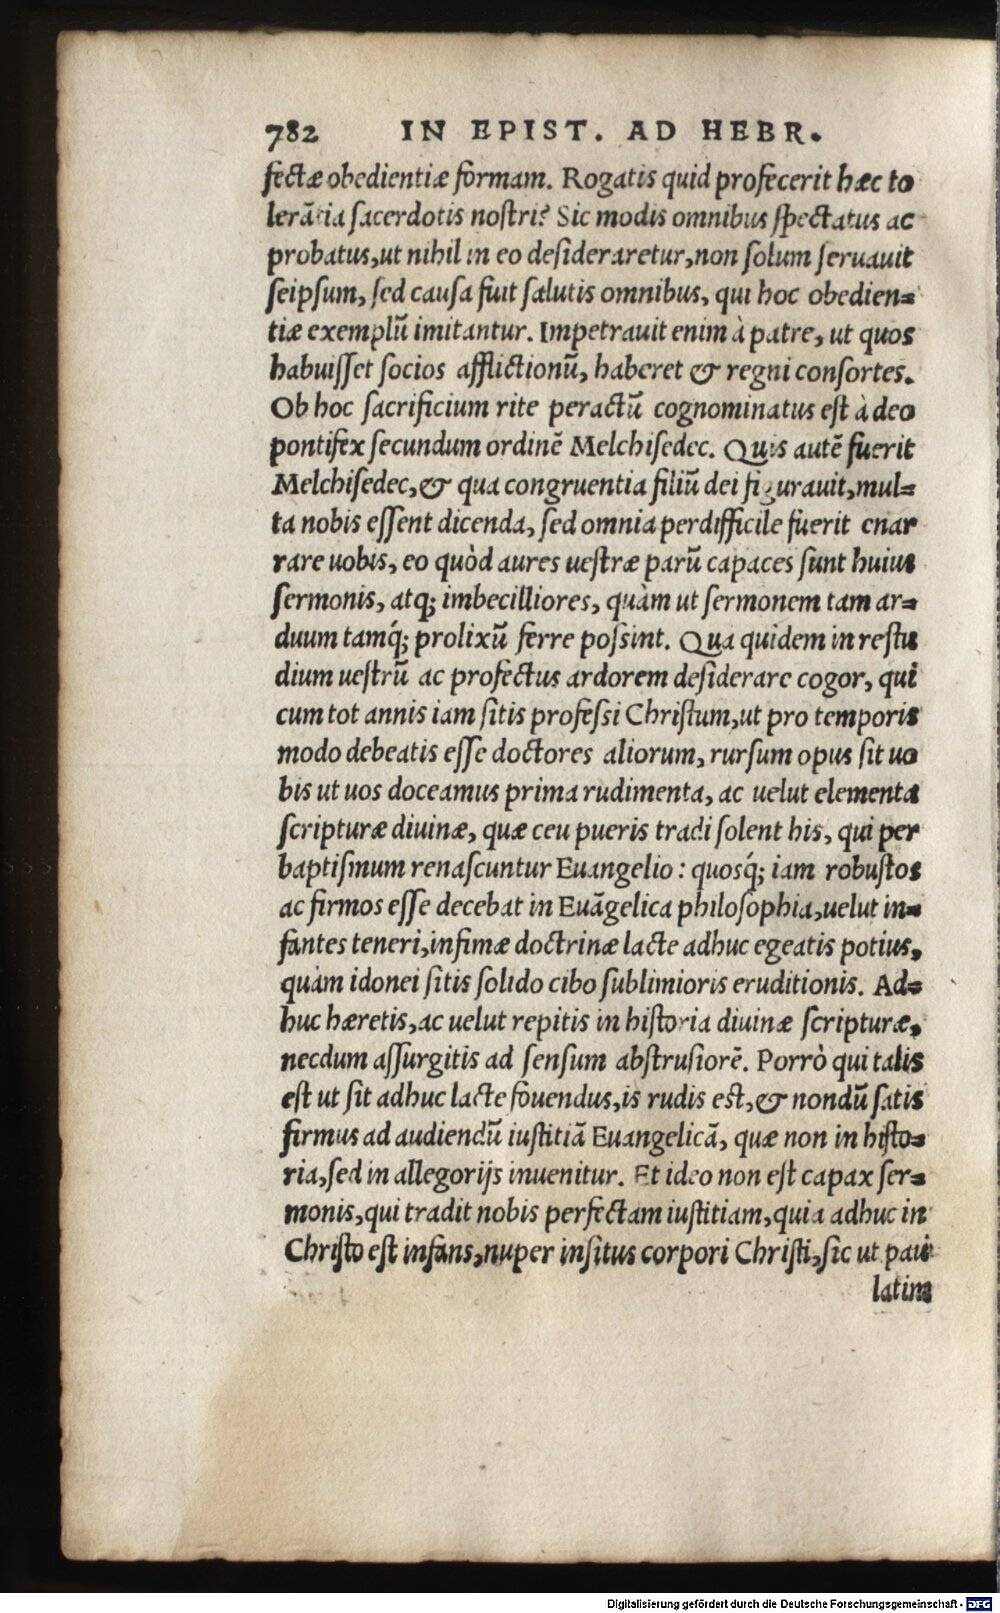 782 IN EPIST. AD HEBR.
fectæ obedientiæ formam. Rogatis quid profecerit hæc to
lerãtia sacerdotis nostri? Sic modis omnibus spectatus ac
probatus,ut nihil in eo desideraretur,non solum seruauit
seipsum, sed causa fuit salutis omnibus, qui hoc obedien=
tiæ exemplũ imitantur. Impetrauit enim à patre, ut quos
habuisset socios afflictionũ, haberet & regni consortes.
Ob hoc sacrificium rite peractũ cognominatus est à deo
pontifex secundum ordinẽ Melchisedec. Quis autẽ fuerit
Melchisedec,& qua congruentia filiũ dei figurauit,mul=
ta nobis essent dicenda, sed omnia perdifficile fuerit enar
rare uobis, eo quòd aures uestræ parũ capaces sunt huius
sermonis, atq; imbecilliores, quàm ut sermonem tam ar=
duum tamq́; prolixũ ferre possint. Qua quidem in re stu
dium uestrũ ac profectus ardorem desiderare cogor, qui
cum tot annis iam sitis professi Christum,ut pro temporis
modo debeatis esse doctores aliorum, rursum opus sit uo
bis ut uos doceamus prima rudimenta, ac uelut elementa
scripturæ diuinæ, quæ ceu pueris tradi solent his, qui per
baptismum renascuntur Euangelio : quosq́; iam robustos
ac firmos esse decebat in Euãgelica philosophia,uelut in=
fantes teneri,infimæ doctrinæ lacte adhuc egeatis potius,
quàm idonei sitis solido cibo sublimioris eruditionis. Ad=
huc hæretis,ac uelut repitis in historia diuinæ scripturæ,
necdum assurgitis ad sensum abstrusiorẽ. Porrò qui talis
est ut sit adhuc lacte fouendus,is rudis est,& nondũ satis
firmus ad audiendũ iustitiã Euangelicã, quæ non in histo=
ria,sed in allegorijs inuenitur. Et ideo non est capax ser=
monis,qui tradit nobis perfectam iustitiam,quia adhuc in
Christo est infans,nuper insitus corpori Christi,sic ut pau
latim
Digitalisierung gefördert durch die Deutsche Forschungsgemeinschaft - DFG